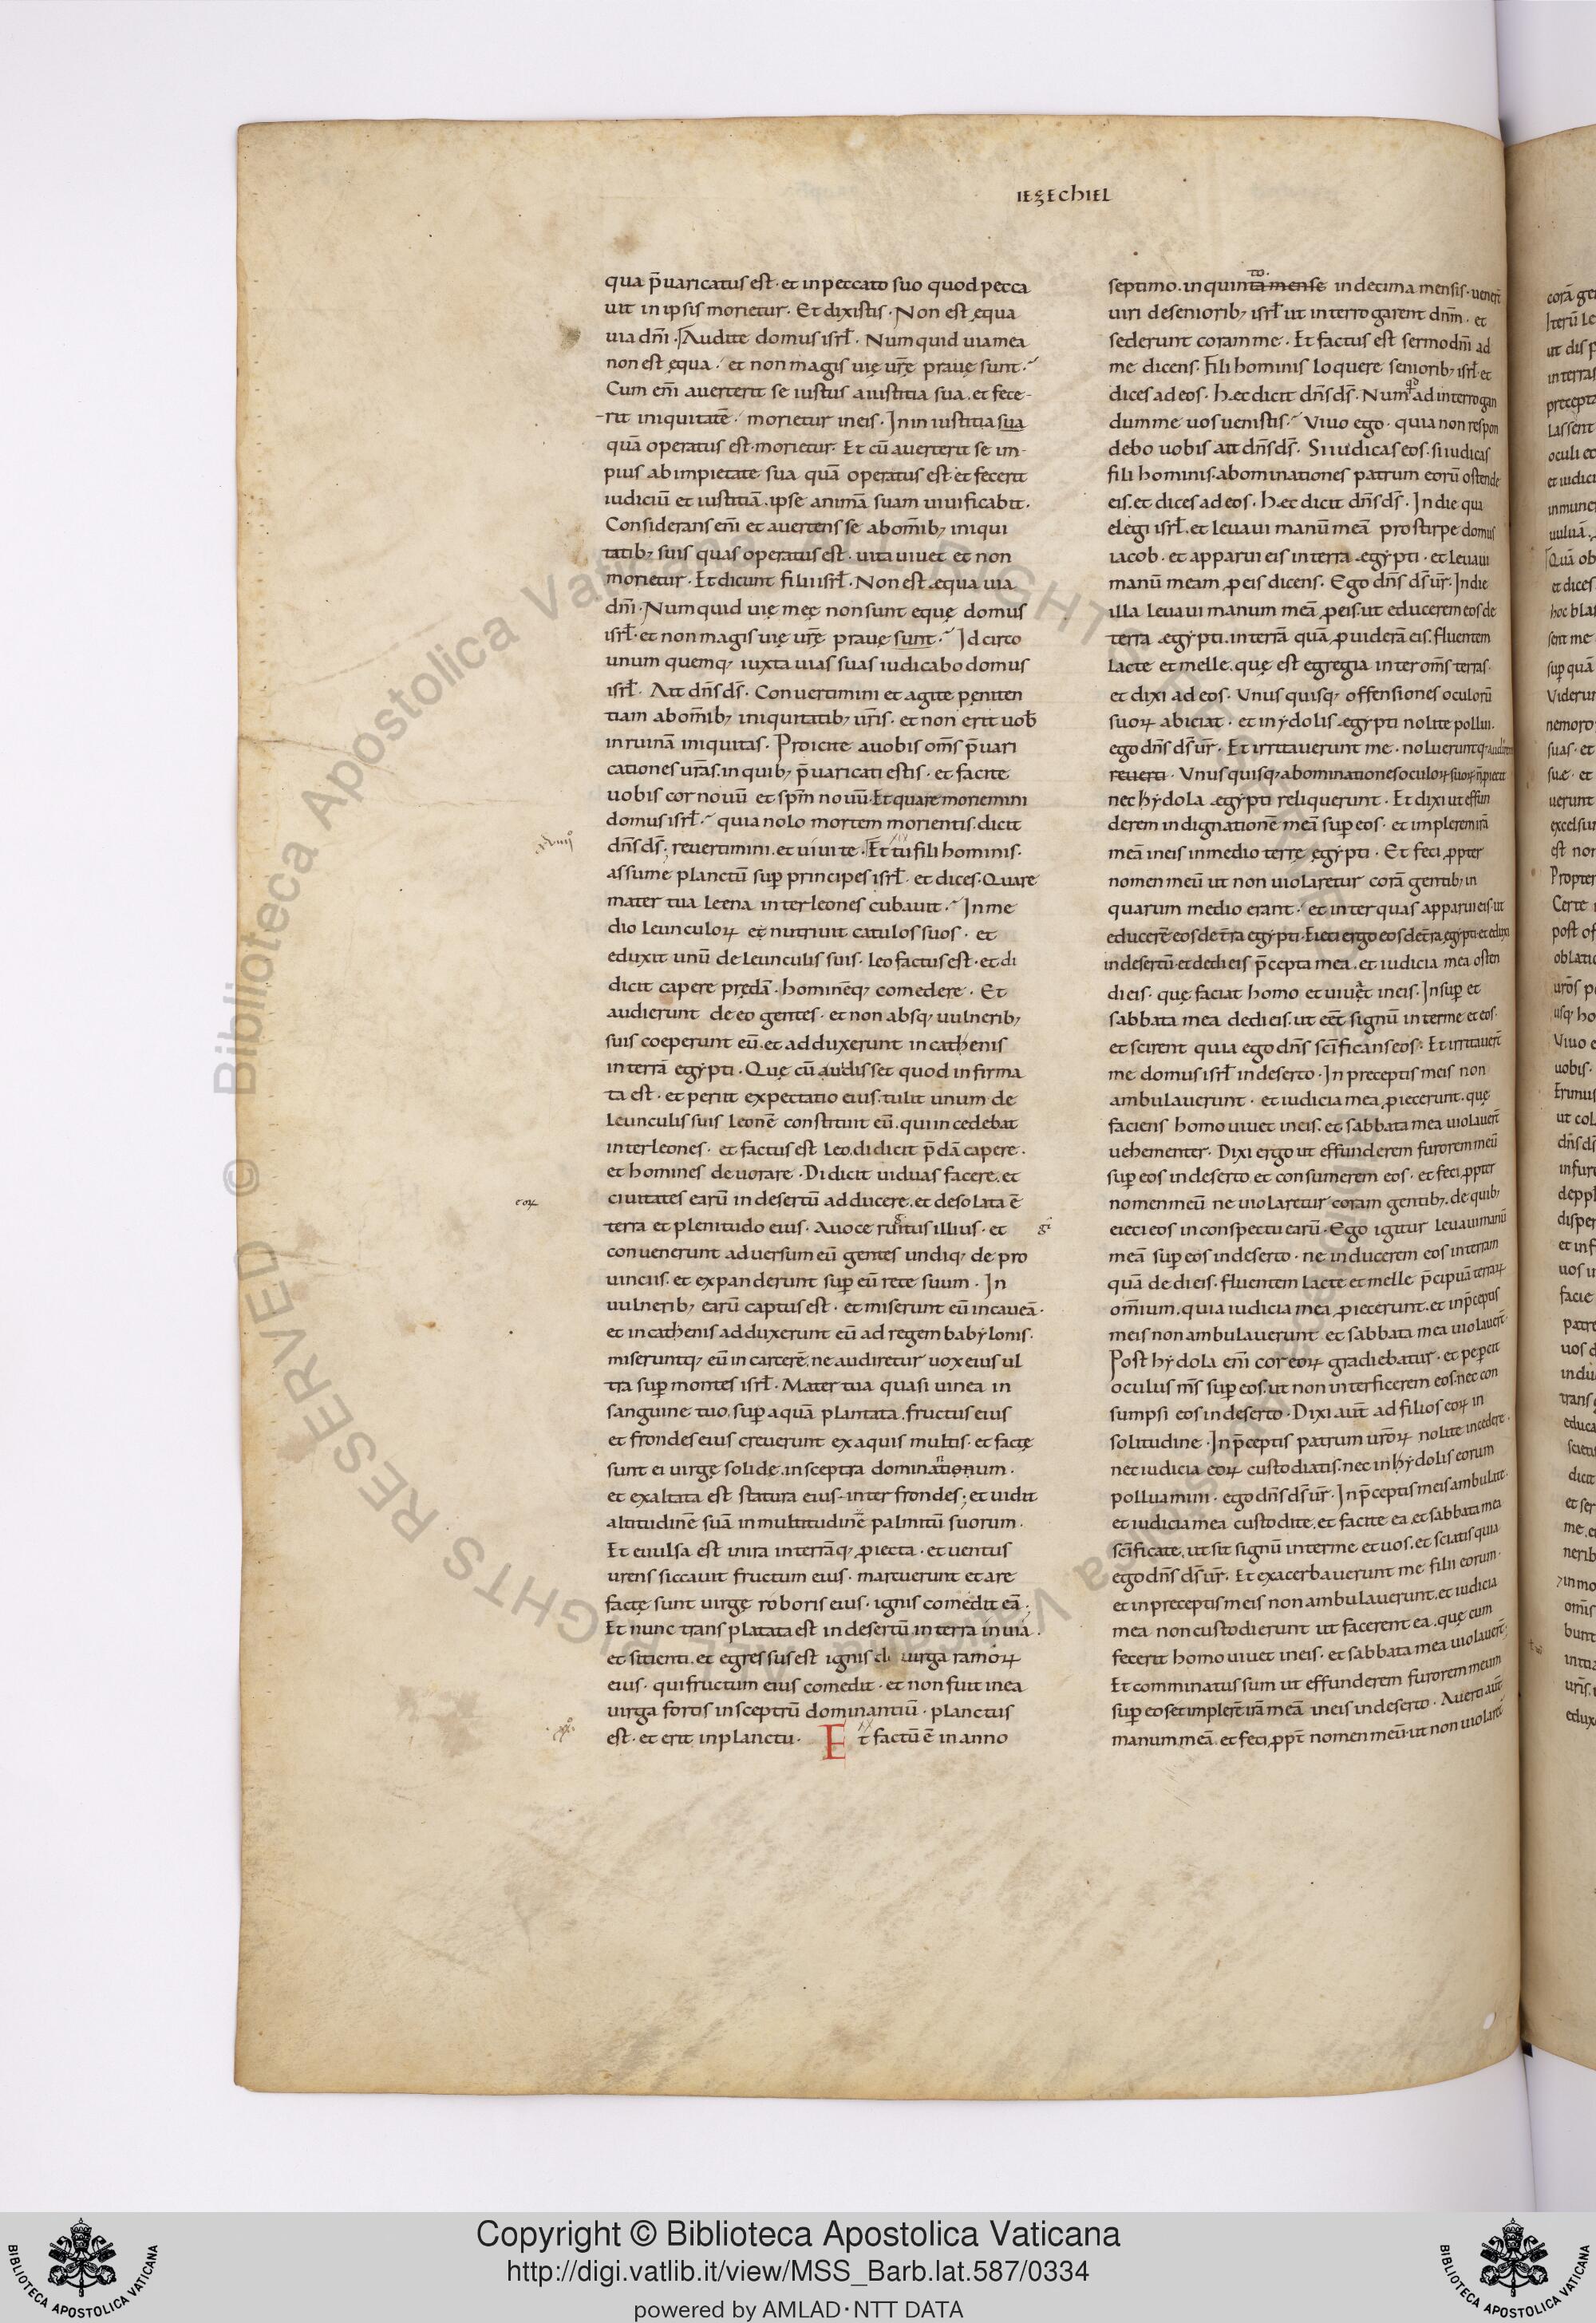 IEZECHIEL
qua p̄uaricatus est · et in peccato suo quod pecca
uit in ipsis morietur · Et dixistis · Non est ęqua
uia dn̄i · Audite domus isrl̄ · Numquid uia mea
non est ęqua · et non magis uię ur̄ę prauę sunt ·
Cum en̄i auerterit se iustus a iustitia sua · et fece-
rit iniquitatē · morietur in eis · In iniustitia sua
quā operatus est · morietur · Et cū auerterit se im-
pius ab impietate sua quā operatus est · et fecerit
iudiciū et iustitiā · ipse animā suam uiuificabit ·
Considerans en̄i et auertens se ab om̄ib; iniqui
tatib; suis quas operatus est · uita uiuet et non
morietur · Et dicunt filii isrl̄ · Non est ęqua uia
dn̄i · Numquid uię meę non sunt equę domus
isrl̄ · et non magis uię ur̄ę prauę sunt · Idcirco
unum quemq; iuxta uias suas iudicabo domus
isrl̄ · Ait dn̄s ds̄ · Conuertimini et agite peniten
tiam ab om̄ib; iniquitatib; ur̄is · et non erit uob̄
in ruinā iniquitas · Proicite a uobis om̄s p̄uari
cationes ur̄as · in quib; p̄uaricati estis · et facite
uobis cor nouū et sp̄m nouū · Et quare moriemini
domus isrl̄ · quia nolo mortem morientis · dicit
dn̄s ds̄ · reuertimini · et uiuite · Et tu fili hominis ·
assume planctū sup̄ principes isrl̄ · et dices · Quare
mater tua leena inter leones cubauit · In me
dio leunculoꝝ enutriuit catulos suos · et
eduxit unū de leunculis suis · leo factus est · et di
dicit capere prędā · hominēq; comedere · Et
audierunt de eo gentes · et non absq; uulnerib;
suis coeperunt eū · et adduxerunt in cathenis
in terrā egẏpti · Quę cū audisset quod infirma
ta est · et periit expectatio eius · tulit unum de
leunculis suis leonē constituit eū · qui incedebat
inter leones · et factus est leo · didicit p̄dā capere ·
et homines deuorare · Didicit uiduas facere · et
ciuitates earū in desertū adducere · et desolata ē
eoꝝ
terra et plenitudo eius · A uoce rugitus illius · et
gi
conuenerunt aduersum eū gentes undiq; de pro
uinciis · et expanderunt sup̄ eū rete suum · In
uulnerib; earū captus est · et miserunt eū in caueā ·
et in cathenis adduxerunt eū ad regem babẏlonis ·
miseruntq; eū in carcerē · ne audiretur uox eius ul
tra sup̄ montes isrl̄ · Mater tua quasi uinea in
sanguine tuo · sup̄ aquā plantata · fructus eius
et frondes eius creuerunt ex aquis multis · et factę
sunt ei uirgę solide · in sceptra dominationum ·
et exaltata est statura eius · inter frondes · et uidit
altitudinē suā in multitudinē palmitū suorum ·
Et euulsa est in ira in terrāq; ꝓiecta · et uentus
urens siccauit fructum eius · martuerunt et are
factę sunt uirgę roboris eius · ignis comedit eā ·
Et nunc transplatata est in desertū in terra inuia ·
et sitienti · et egressus est ignis de uirga ramoꝝ
eius · qui fructum eius comedit · et non fuit in ea
uirga fortis in sceptrū dominantiū · planctus
est · et erit in planctu · Et factū ē in anno
septimo · in quinta mense in decima mensis · ueneřt
to
uiri de seniorib; isrl̄ ut interrogarent dn̄m · et
sederunt coram me · Et factus est sermo dn̄i ad
me dicens · Fili hominis loquere seniorib; isrl̄ · et
dices ad eos · Hęc dicit dn̄s ds̄ · Num ad interrogan
dum me uos uenistis · Viuo ego · quia non respon
debo uobis ait dn̄s ds̄ · Si iudicas eos · si iudicas
fili hominis · abominationes patrum eorū ostende
eis · et dices ad eos · Hęc dicit dn̄s ds̄ · In die qua
elegi isrl̄ · et leuaui manū meā pro stirpe domus
iacob · et apparui eis in terra ęgẏpti · et leuaui
manū meam ꝓ eis dicens · Ego dn̄s ds̄ ur̄ · In die
illa leuaui manum meā ꝓ eis · ut educerem eos de
terra ęgẏpti · in terrā quā ꝓuiderā eis · fluentem
lacte et melle · quę est egregia inter om̄s terras ·
et dixi ad eos · Vnusquisq; offensiones oculorū
suoꝝ abiciat · et in ẏdolis ęgẏpti nolite pollui ·
ego dn̄s ds̄ ur̄ · Et irritauerunt me · nolueruntq; audire
reuerti · Vnusquisq; abominationes oculoꝝ suoꝝ n̄ ꝓiecit
nec hẏdola ęgẏpti reliquerunt · Et dixi ut effun
derem indignationē meā sup̄ eos · et implerem irā
meā in eis in medio terrę egẏpti · Et feci ꝓpter
nomen meū ut non uiolaretur corā gentib; in
quarum medio erant · et inter quas apparui eis · ut
educerē eos de t̄ra egẏpti · Eieci ergo eos de t̄ra ęgẏpti · et eduxi
in desertū · et dedi eis p̄cepta mea · et iudicia mea osten
di eis · quę faciat homo et uiuęt in eis · Insup̄ et
sabbata mea dedi eis · ut eēt signū inter me et eos ·
et scirent quia ego dn̄s sc̄ificans eos · Et irritaueřt
me domus isrl̄ in deserto · In preceptis meis non
ambulauerunt · et iudicia mea ꝓiecerunt · quę
faciens homo uiuet in eis · et sabbata mea uiolaueřt
uehementer · Dixi ergo ut effunderem furorem meū
sup̄ eos in deserto · et consumerem eos · et feci ꝓpter
nomen meū ne uiolaretur coram gentib; · de quib;
eieci eos in conspectu earū · Ego igitur leuaui manū
meā sup̄ eos in deserto · ne inducerem eos in terram
quā dedi eis · fluentem lacte et melle p̄cipuā terraꝝ
om̄ium · quia iudicia mea ꝓiecerunt · et in p̄ceptis
meis non ambulauerunt et sabbata mea uiolaueřt ·
Post hẏdola en̄i cor eoꝝ gradiebatur · et pepercit
oculus m̄s sup̄ eos · ut non interficerem eos · nec con
sumpsi eos in deserto · Dixi aūt ad filios eoꝝ in
solitudine · In p̄ceptis patrum ur̄oꝝ nolite incedere ·
nec iudicia eoꝝ custodiatis · nec in hẏdolis eorum
polluamini · ego dn̄s ds̄ ur̄ · In p̄ceptis meis ambulate ·
et iudicia mea custodite · et facite ea · et sabbata mea
sc̄ificate · ut sit signū inter me et uos · et sciatis quia
ego dn̄s ds̄ ur̄ · Et exacerbauerunt me filii eorum ·
et in preceptis meis non ambulauerunt · et iudicia
mea non custodierunt ut facerent ea · quę cum
fecerit homo uiuet in eis · et sabbata mea uiolaueřt ·
Et comminatus sum ut effunderem furorem meum
sup̄ eos et implerē irā meā in eis in deserto · Auerti aūt
manum meā · et feci ꝓpt̄ nomen meū · ut non uiolaret̄
Copyright © Biblioteca Apostolica Vaticana
http://digi.vatlib.it/view/MSS_Barb.lat.587/0334
powered by AMLAD·NTT DATA
BIBLIOTECA APOSTOLICA VATICANA
BIBLIOTECA APOSTOLICA VATICANA
© Biblioteca Apostolica Vaticana ALL RIGHTS RESERVED